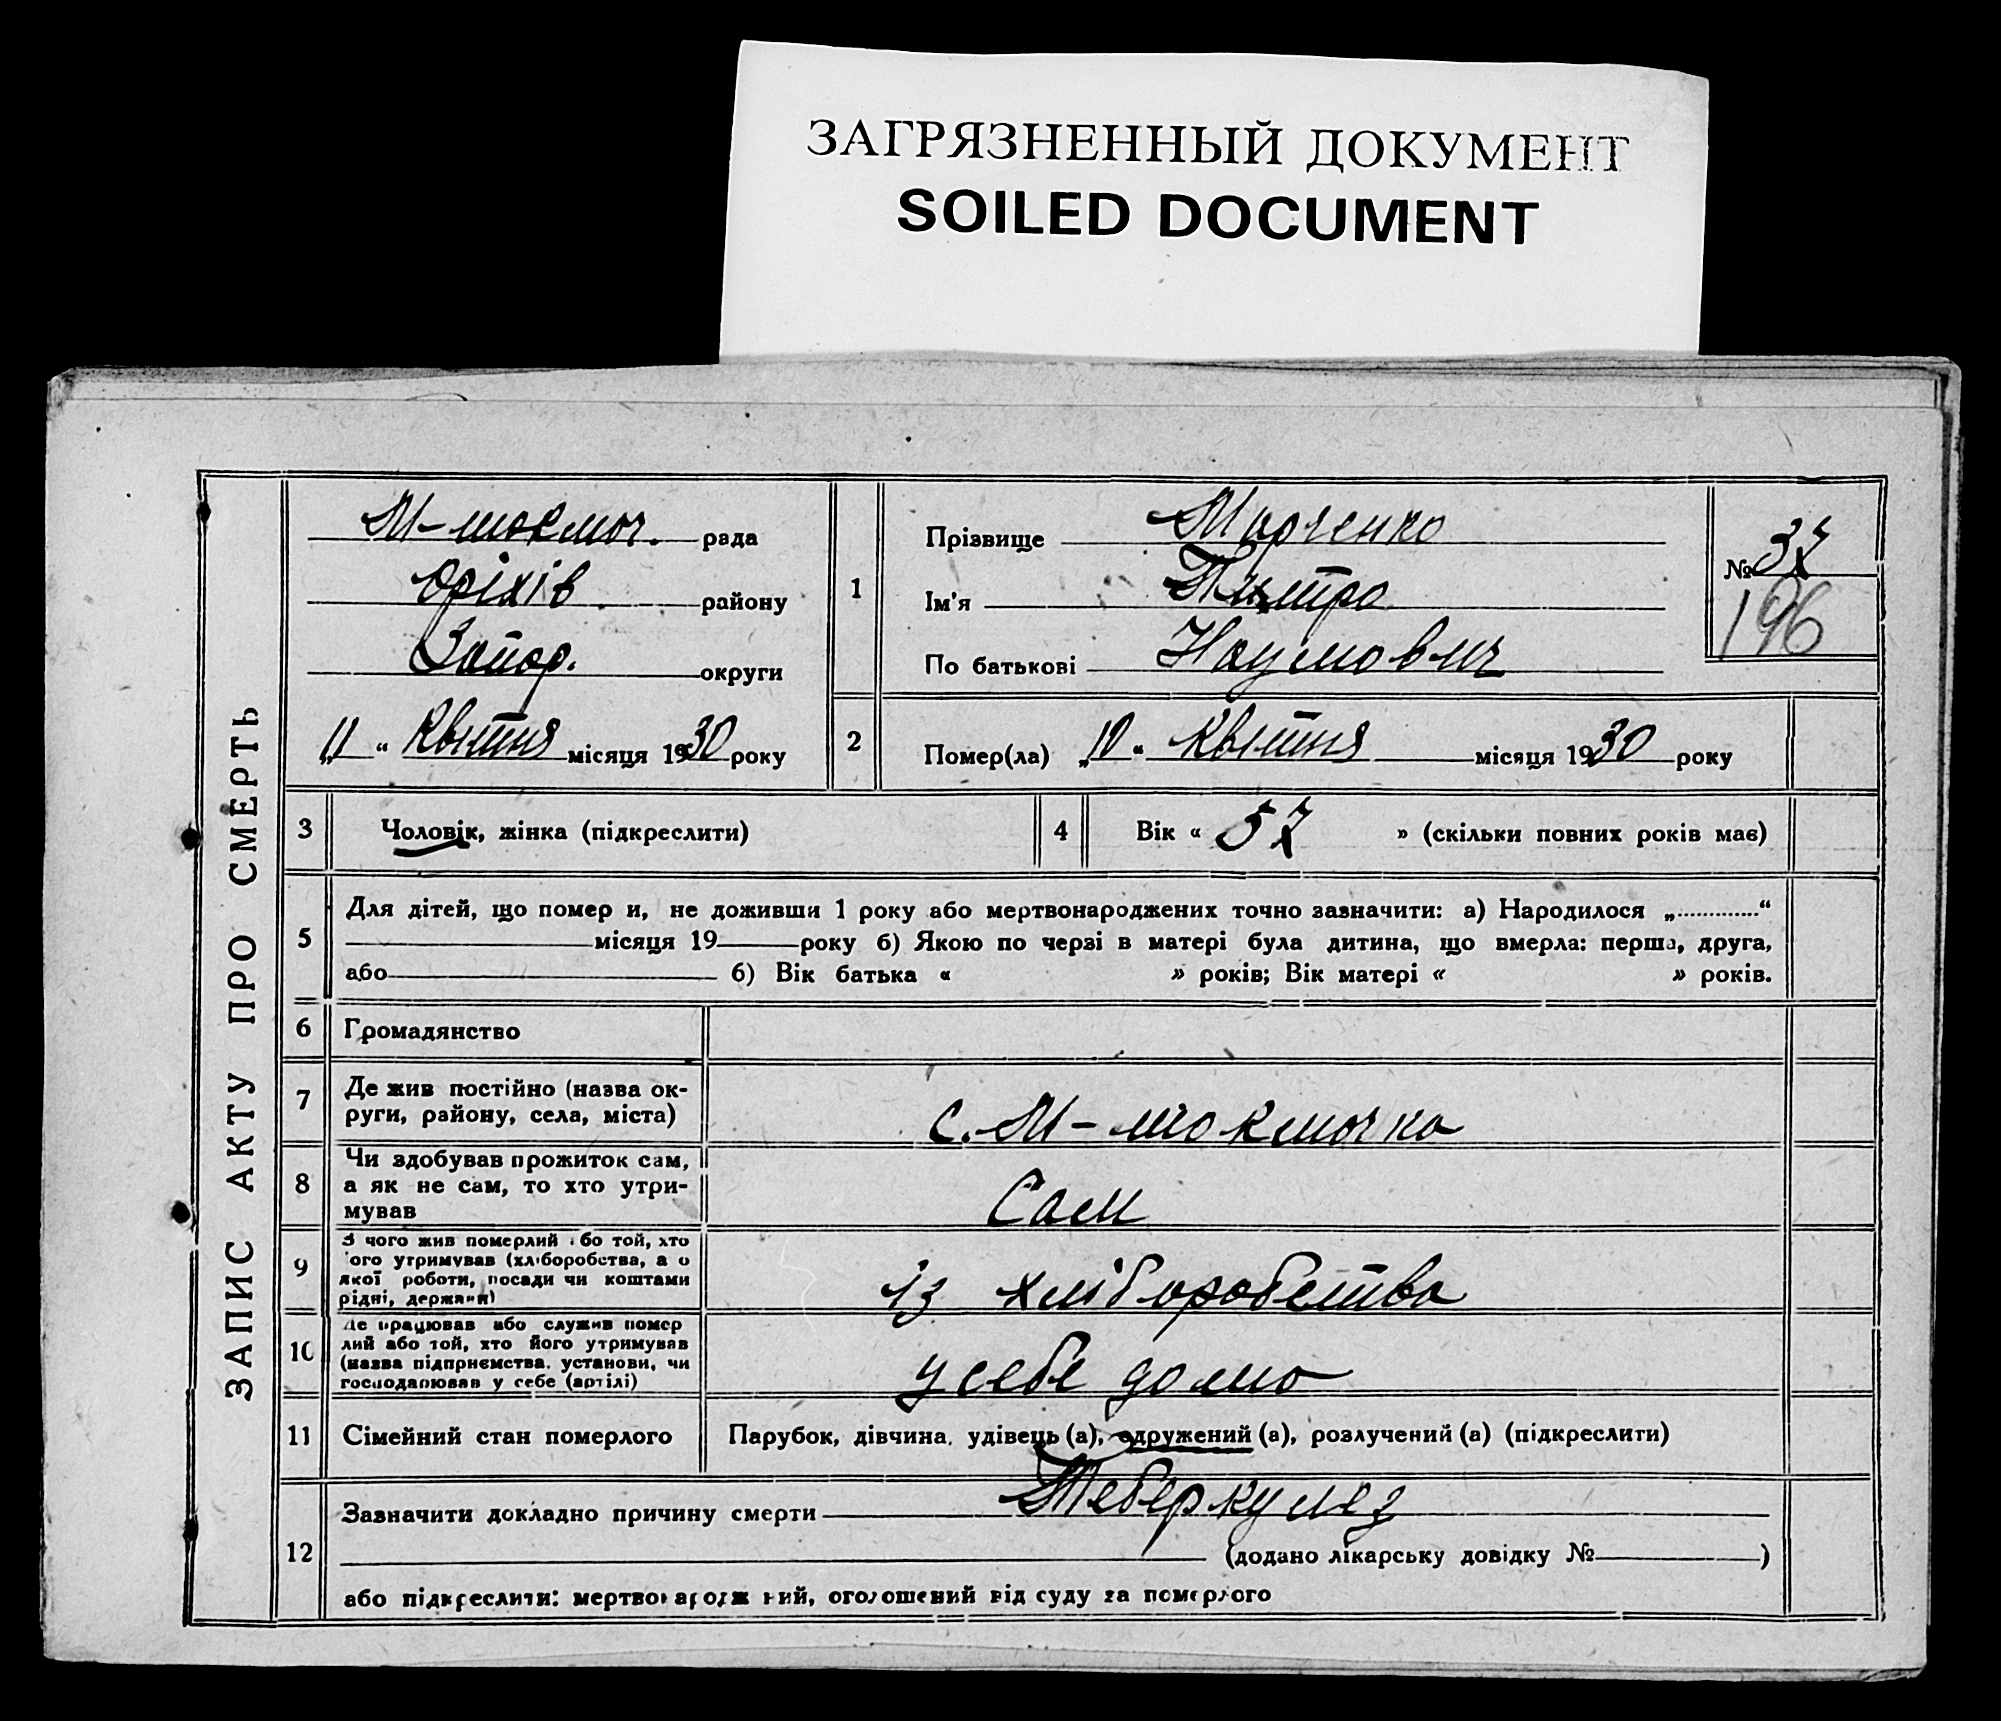 ЗАГРЯЗНЕННЫЙ ДОКУМЕНТ
SOILED DOCUMENT
ЗАПИС АКТУ ПРО СМЕРТЬ
М-токмач. рада
Оріхів району
Запор. округи
„11“ Квітня місяця 1930 року
1
Прізвище Марченко
Ім'я Дмитро
По батькові Наумович
№ 37
196
2
Помер(ла) „10“ Квітня місяця 1930 року
3 Чоловік, жінка (підкреслити)
4 Вік « 57 » (скільки повних років має)
5
Для дітей, що помер и, не доживши 1 року або мертвонароджених точно зазначити: а) Народилося „.............“
місяця 19 року б) Якою по черзі в матері була дитина, що вмерла: перша, друга,
або б) Вік батька « » років; Вік матері « » років.
6 Громадянство
7
Де жив постійно (назва ок-
руги, району, села, міста)
с. М-токмачка
8
Чи здобував прожиток сам,
а як не сам, то хто утри-
мував
Сам
9
З чого жив померлий або той, хто
ого утримував (хліборобства, а о
якої роботи, посади чи коштами
рідні, держави)
із хліборобства
10
Де працював або служив помер
лий або той, хто його утримував
(назва підприємства, установи, чи
господарював у себе (артілі)
у себе дома
11 Сімейний стан померлого
Парубок, дівчина, удівець (а), одружений (а), розлучений (а) (підкреслити)
12
Зазначити докладно причину смерти Теберкулез
(додано лікарську довідку № )
або підкреслити: мертвонароджений, оголошений від суду за померлого